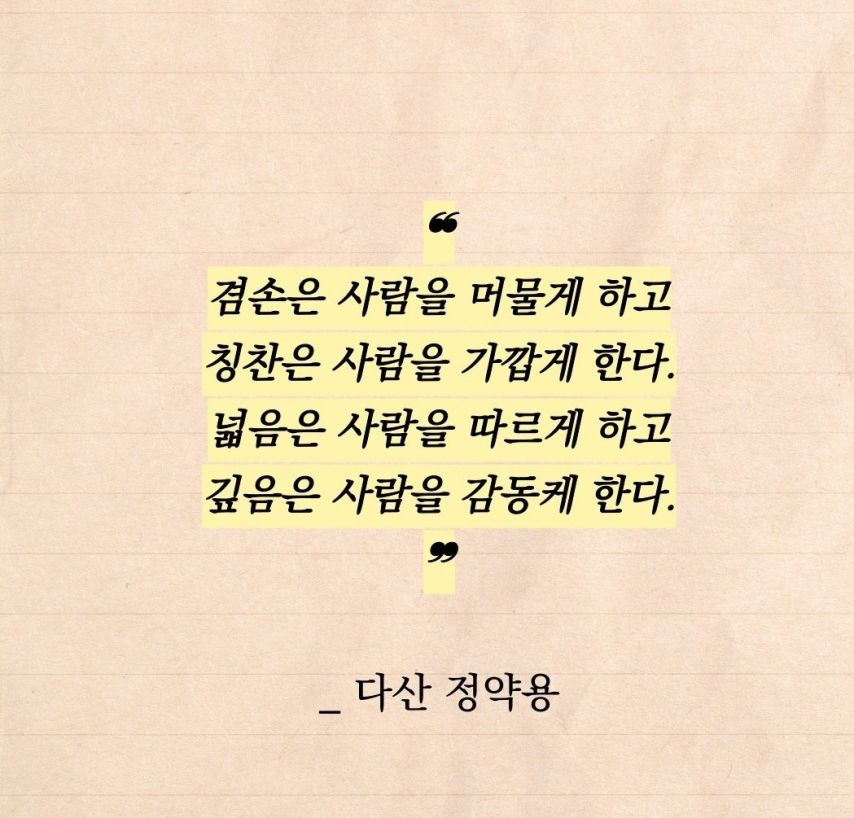 ❝
겸손은 사람을 머물게 하고
칭찬은 사람을 가깝게 한다.
넓음은 사람을 따르게 하고
깊음은 사람을 감동케 한다.
❞
_ 다산 정약용